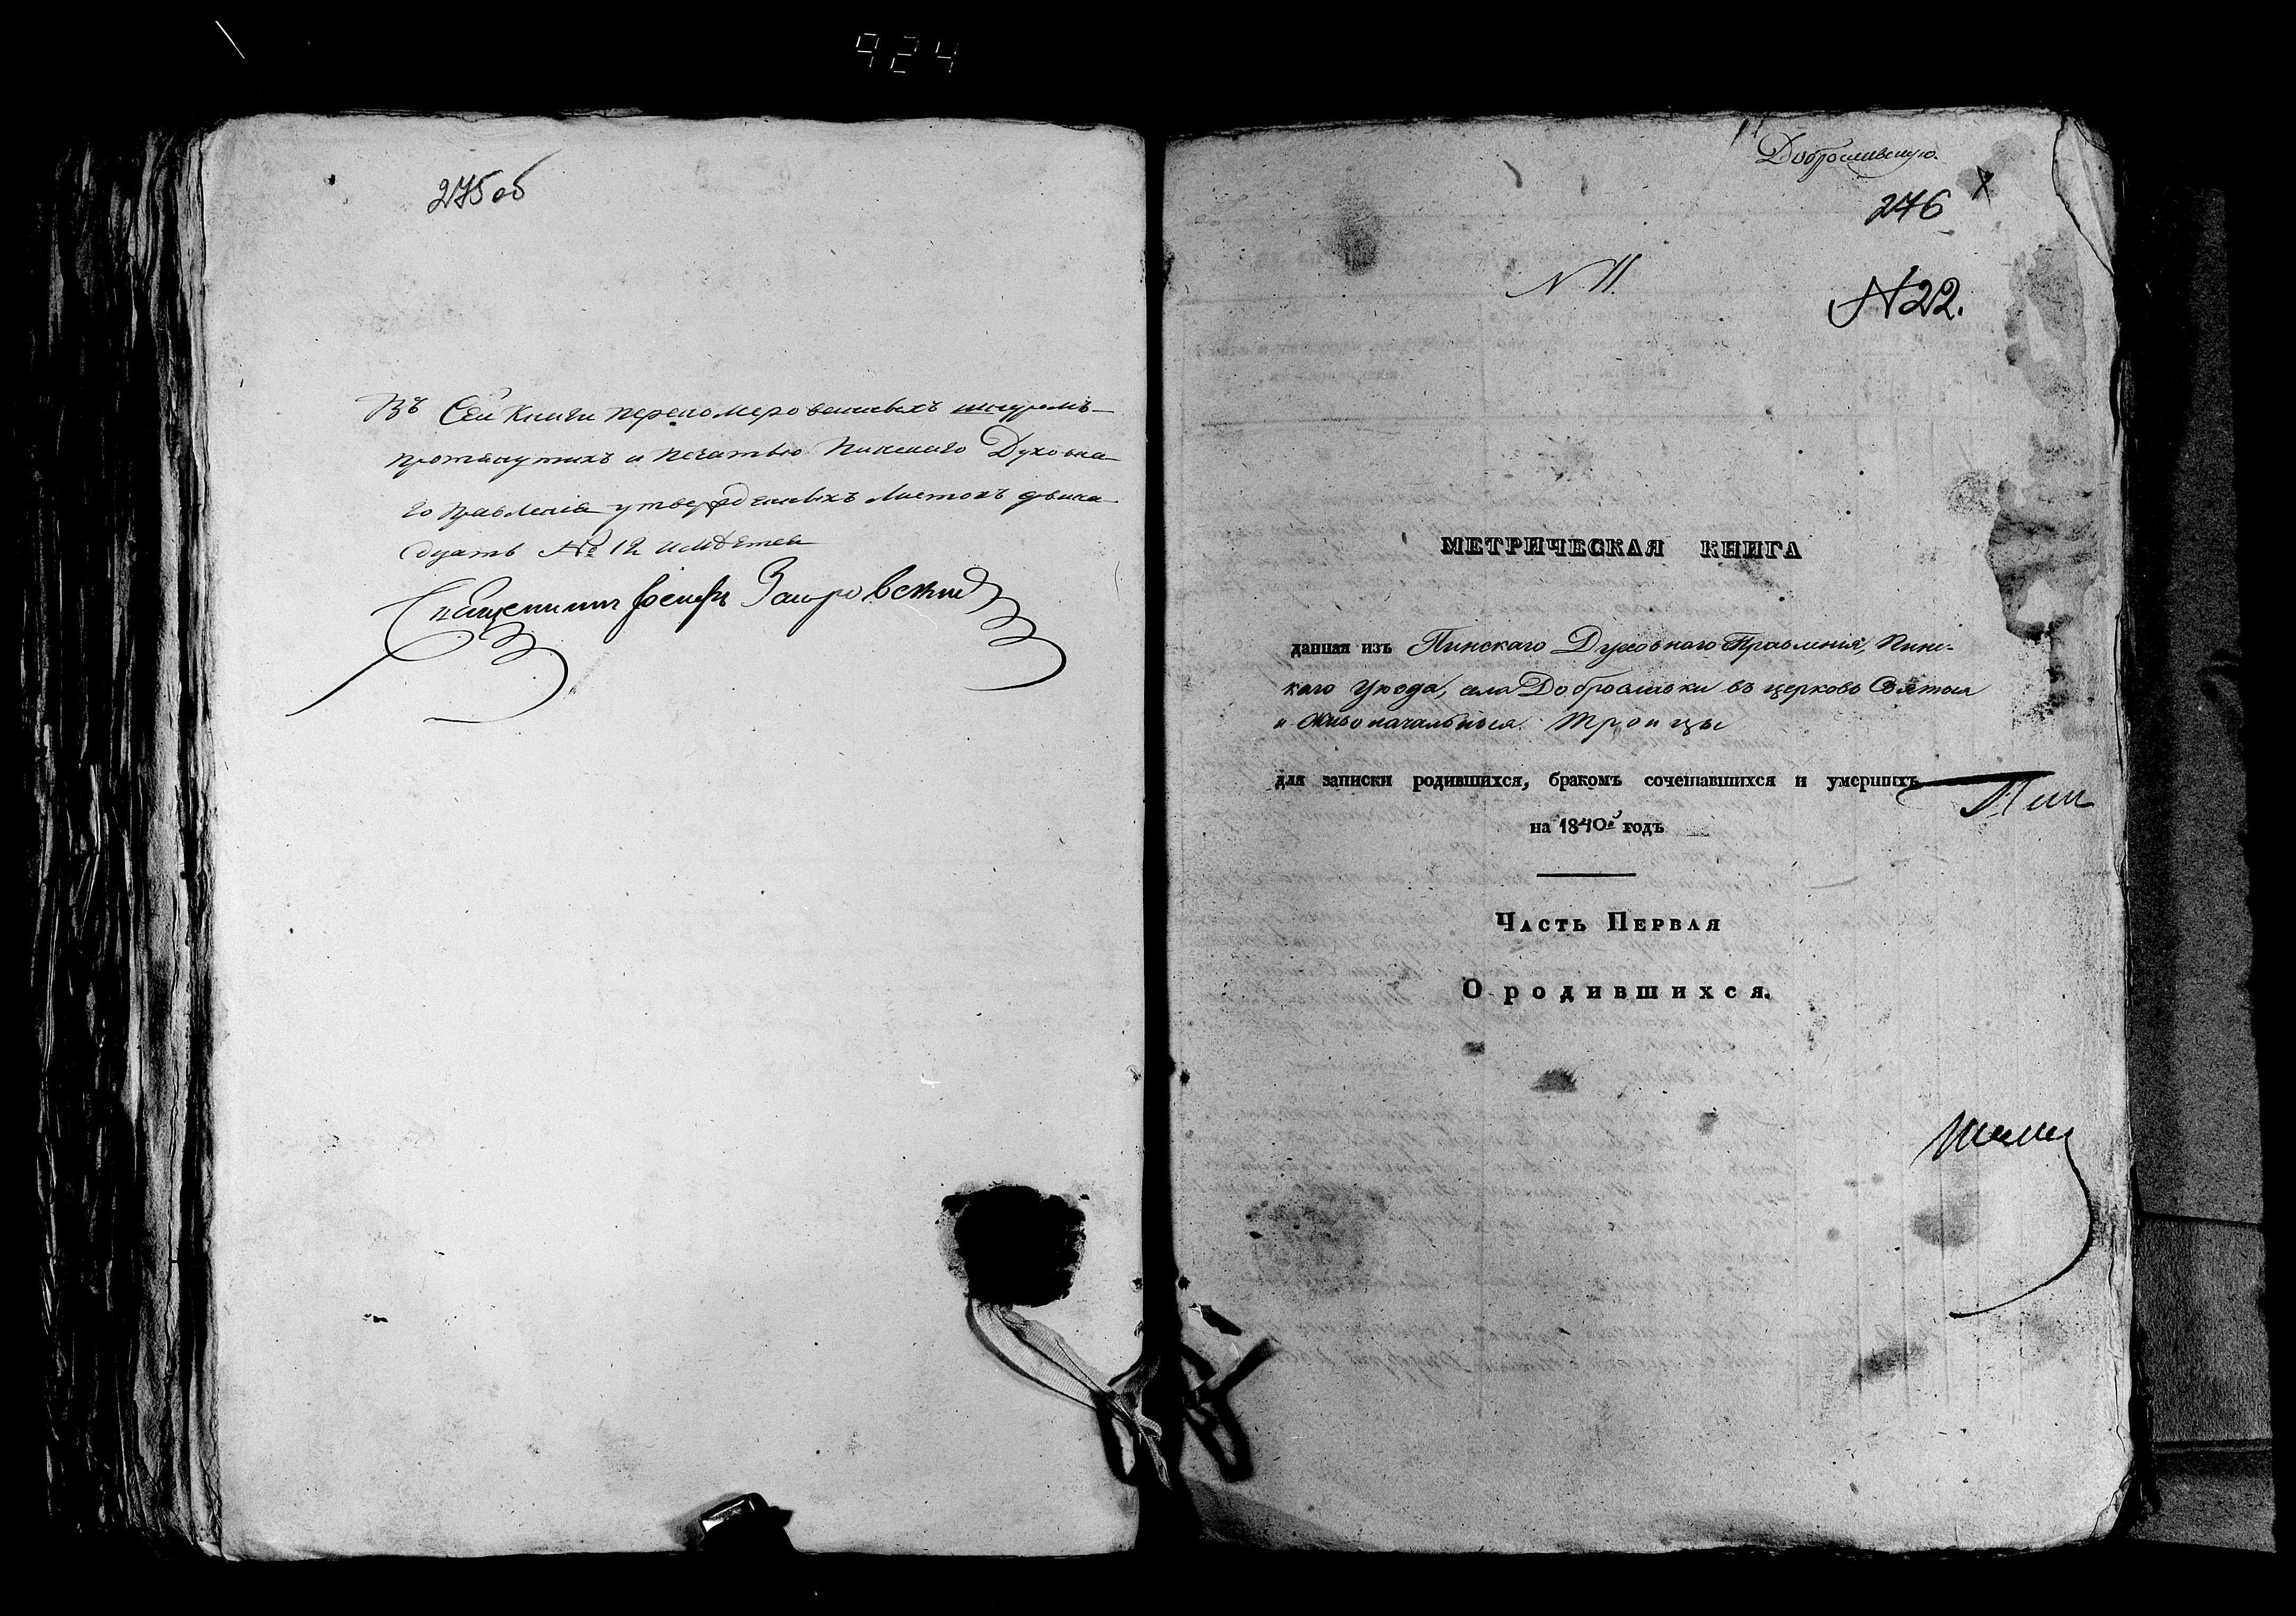 924
275 об
Въ Сей Книги перономерованныхъ шнуромъ
протянутихъ и печатью Пинскаго Духовна
го Правленія утвержденныхъ листовъ двена
дцать № 12 имѣется
Священникъ Іосифъ
Доброславскую.
276
N 11.
N22.
МЕТРИЧЕСКАЯ КНИГА
данная изъ Пинскаго Духовнаго Правленія, Пинс-
каго Уѣзда, села Доброславки въ церковь Святыя
и Живоначальныя Троицы
для записки родившихся, бракомъ сочетавшихся и умершихъ
на 1840й годъ
Часть Первая
О родившихся.